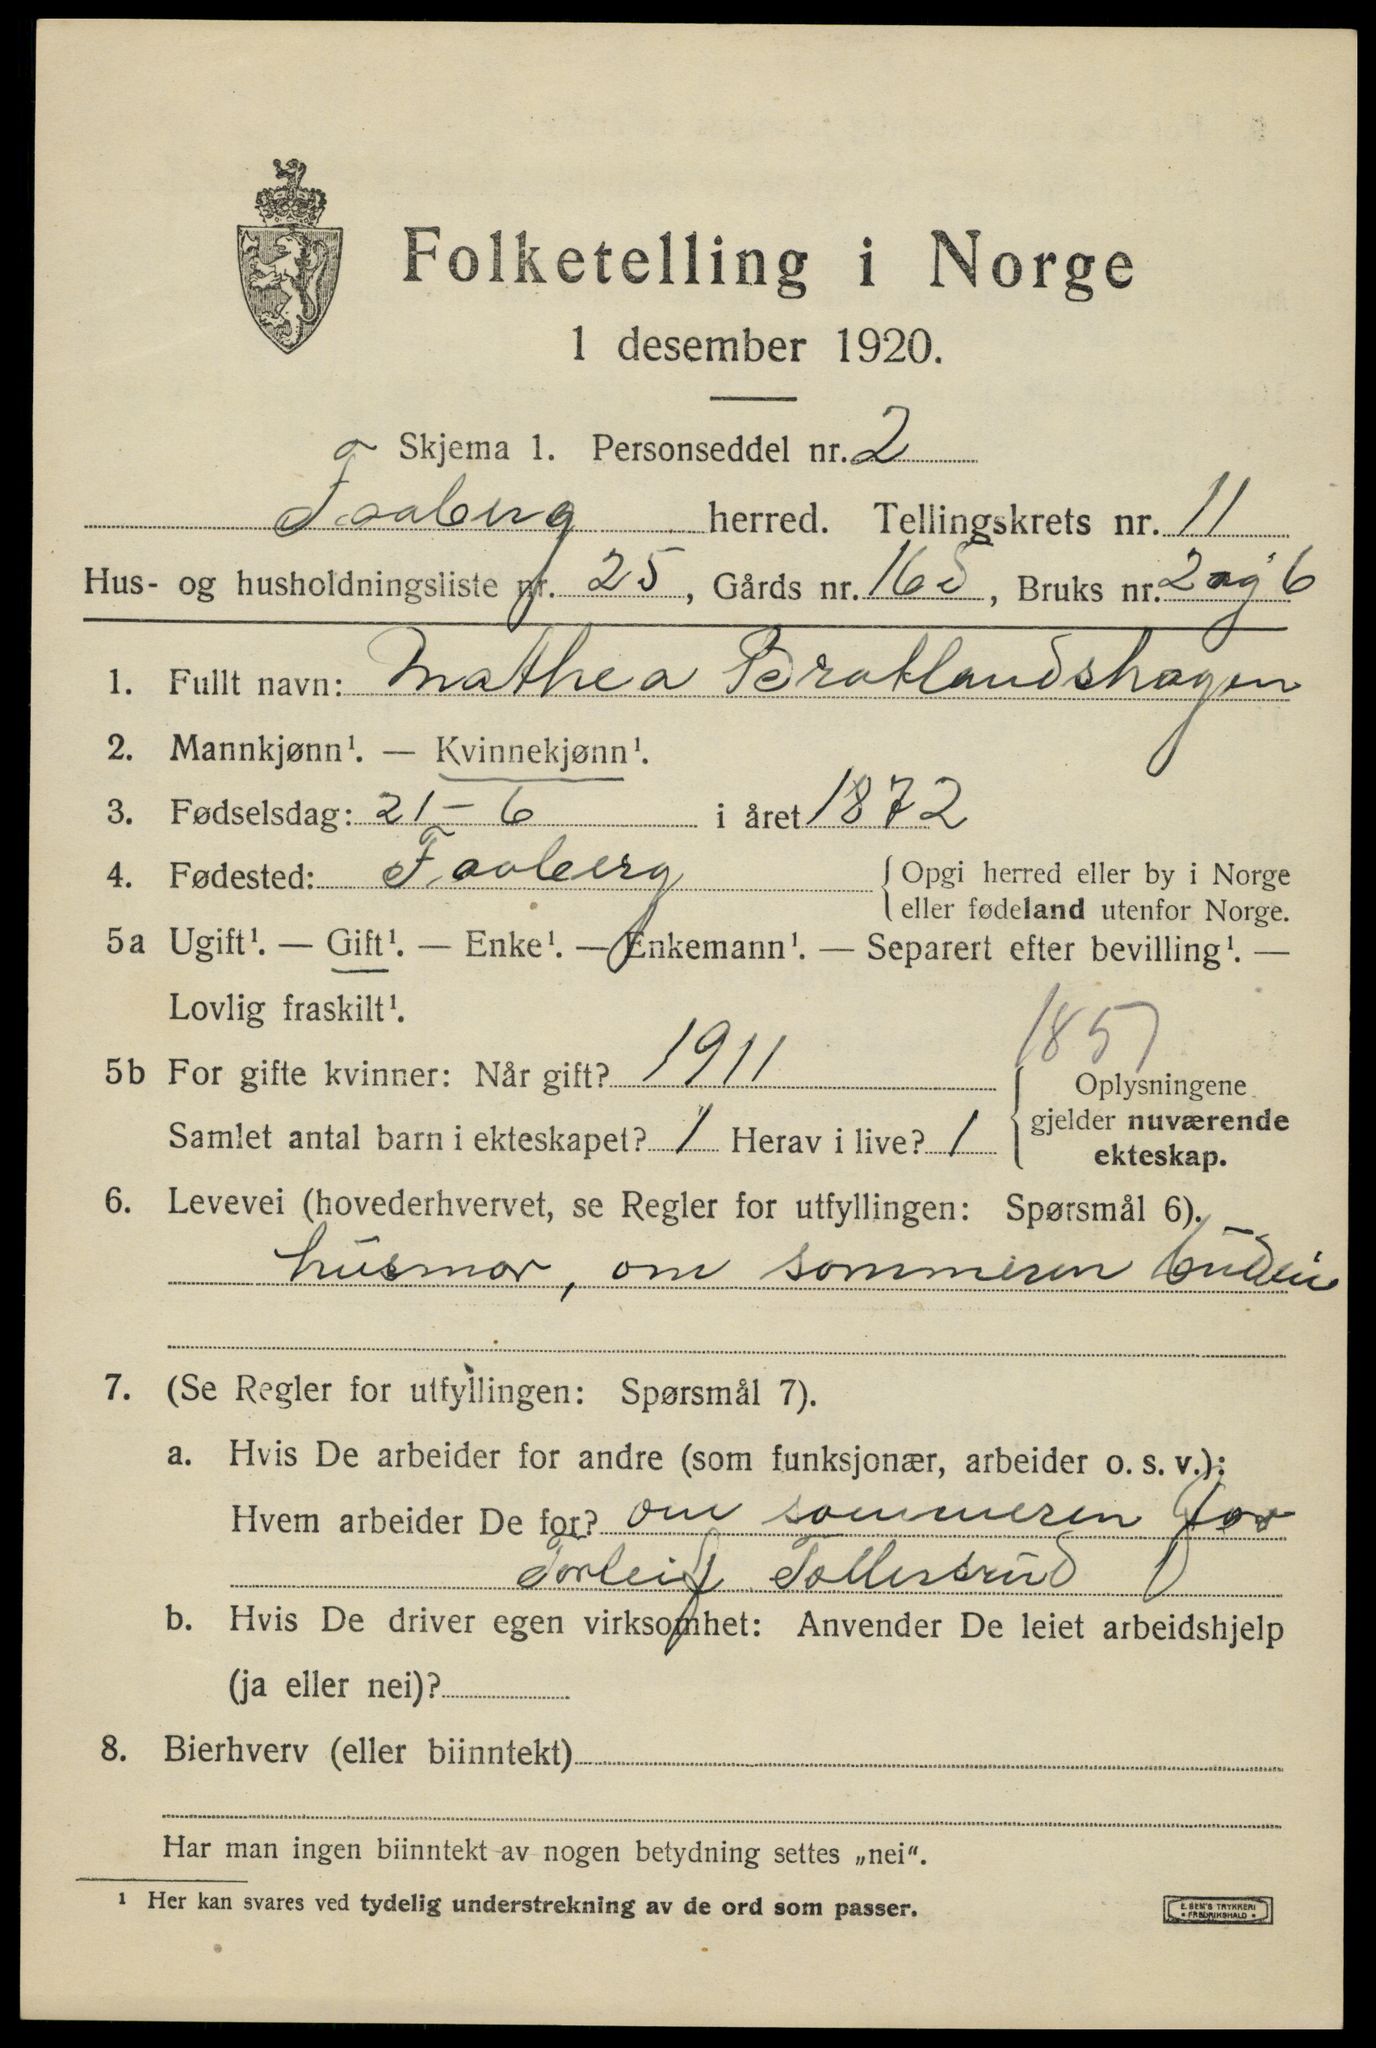 Folketelling i Norge
1 desember 1920.
Skjema 1. Personseddel nr. 2
Faaberg herred. Tellingskrets nr. 11
Hus- og husholdningsliste nr. 25, Gårds nr. 165, Bruks nr. 2 og 6
1. Fullt navn: Mathea Brotlandshagen
2. Mannkjønn¹. — Kvinnekjønn¹.
3. Fødselsdag: 21-6 i året 1872
4. Fødested: Faaberg { Opgi herred eller by i Norge
eller fødeland utenfor Norge.
5a Ugift¹. — Gift¹. — Enke¹. — Enkemann¹. — Separert efter bevilling¹. —
Lovlig fraskilt¹.
1857
5b For gifte kvinner: Når gift? 1911
Samlet antal barn i ekteskapet? 1 Herav i live? 1
{ Oplysningene
gjelder nuværende
ekteskap.
6. Levevei (hovederhvervet, se Regler for utfyllingen: Spørsmål 6).
husmor, om sommeren budeie
7. (Se Regler for utfyllingen: Spørsmål 7).
a. Hvis De arbeider for andre (som funksjonær, arbeider o. s. v.):
Hvem arbeider De for? om sommeren for
Torleif Tollersrud
b. Hvis De driver egen virksomhet: Anvender De leiet arbeidshjelp
(ja eller nei)?
8. Bierhverv (eller biinntekt)
Har man ingen biinntekt av nogen betydning settes „nei“.
¹ Her kan svares ved tydelig understrekning av de ord som passer.
E. SEM'S TRYKKERI
FREDRIKSHALD